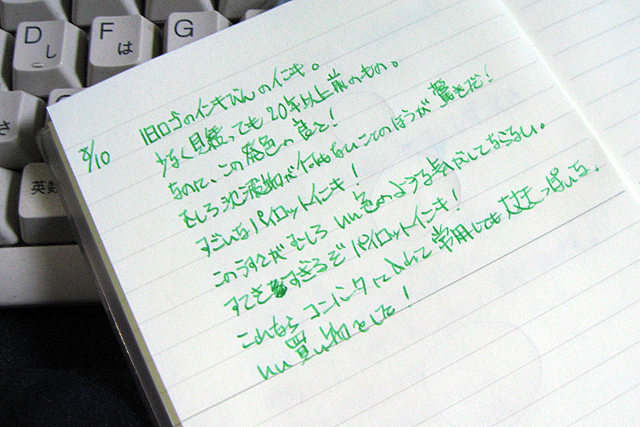 D
し
F
は
G
さ
英数
8/10
旧ロゴのインキびんのインキ。
少なく見積っても20年以上前のもの。
なのに、この発色の良さ!
むしろ沈澱物が何もないことのほうが驚きだ!
すごいなパイロットインキ!
このうすさがむしろいい色のような気がしてならない。
すてきすぎるぞパイロットインキ!
これならコンバータに入れて常用しても大丈夫っぽいな。
いい買い物をした!